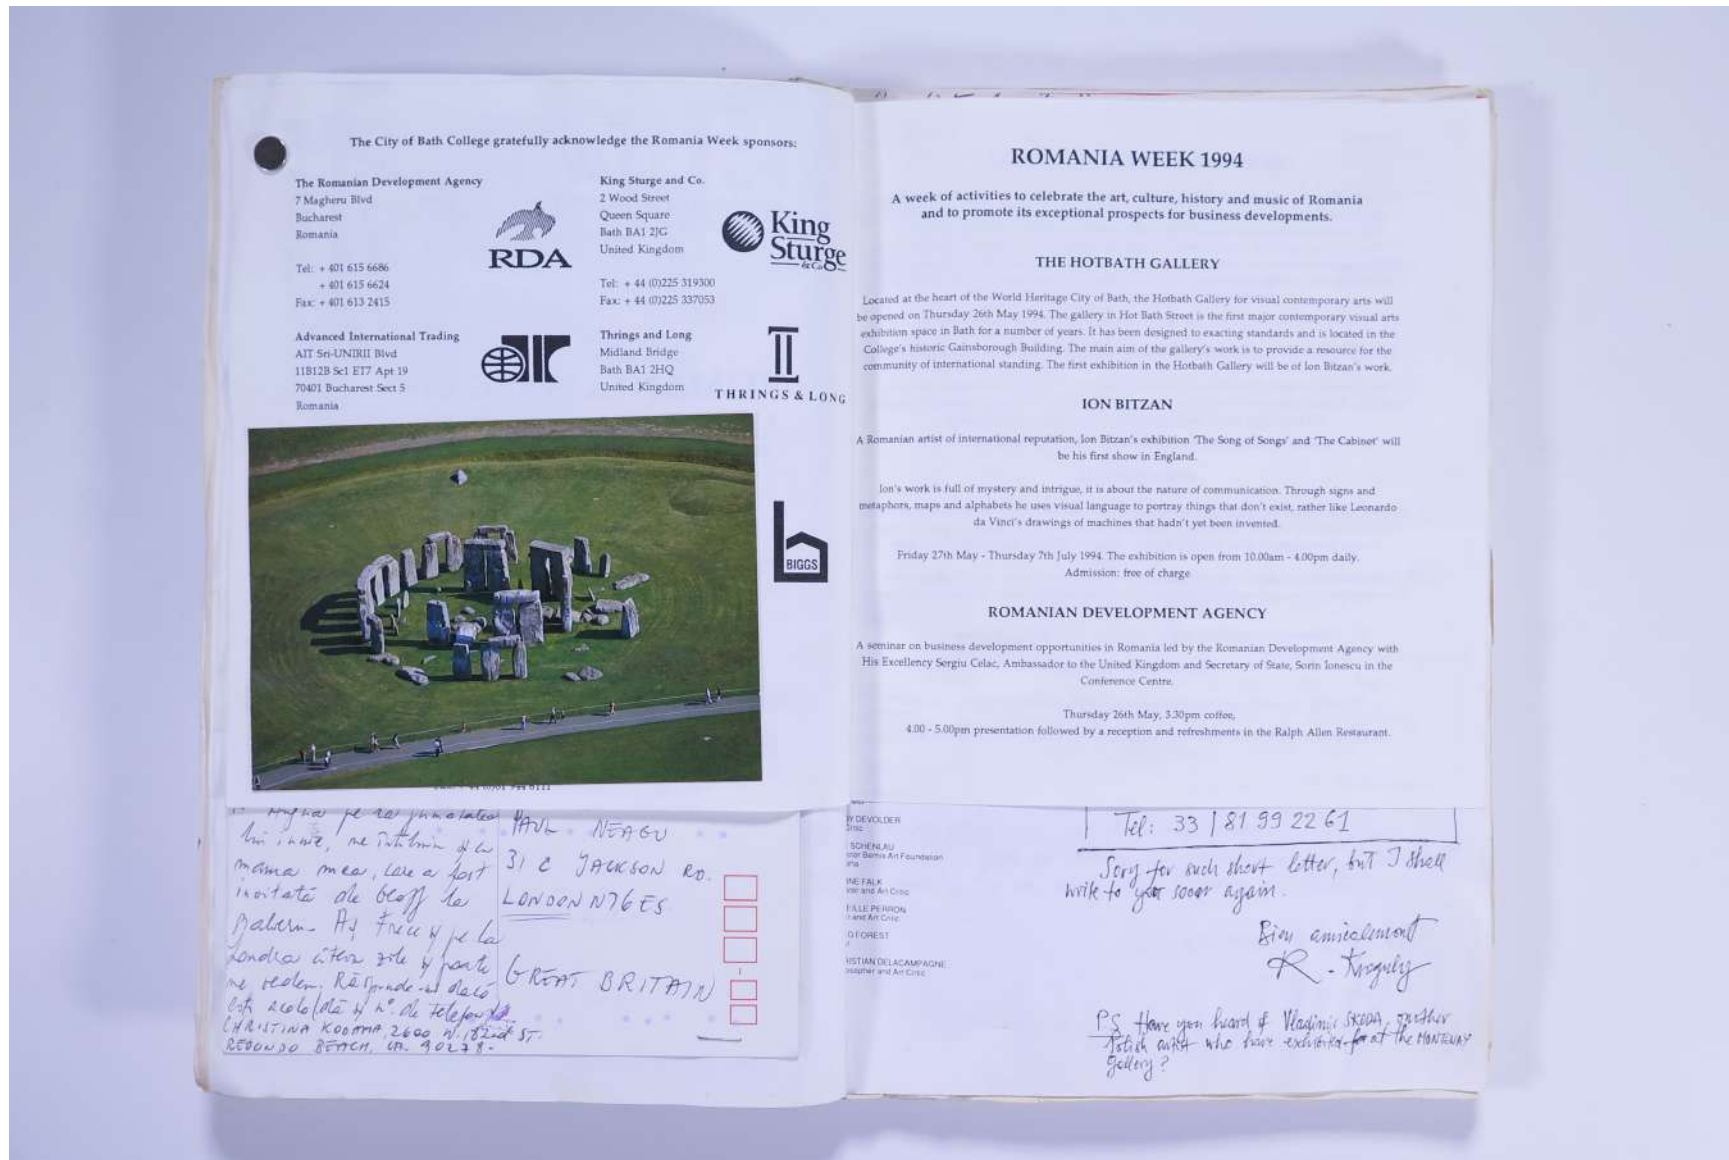 The City of Bath College gratefully acknowledge the Romania Week sponsors:
The Romanian Development Agency
7 Magheru Blvd
Bucharest
Romania
Tel: + 401 615 6686
+ 401 615 6624
Fax: + 401 613 2415
RDA
King Sturge and Co.
2 Wood Street
Queen Square
Bath BA1 2JG
United Kingdom
Tel: + 44 (0)225 319300
Fax: + 44 (0)225 337053
King
Sturge
& Co
Advanced International Trading
AIT Sri-UNIRII Blvd
11B12B Sc1 ET7 Apt 19
70401 Bucharest Sect 5
Romania
Thrings and Long
Midland Bridge
Bath BA1 2HQ
United Kingdom
THRINGS & LONG
BIGGS
lui iunie, ne întîlnim și cu
mama mea, care a fost
invitată de Geoff la
Așa trece și pe la
Londra zile și poate
ne vedem. Răspunde dacă
ești acolo și nº. de telefon
CHRISTINA 2600 N. 182nd ST.
REDONDO BEACH, CA. 90278-
PAUL NEAGU
31 C JACKSON RD.
LONDON N76ES
GREAT BRITAIN
ROMANIA WEEK 1994
A week of activities to celebrate the art, culture, history and music of Romania
and to promote its exceptional prospects for business developments.
THE HOTBATH GALLERY
Located at the heart of the World Heritage City of Bath, the Hotbath Gallery for visual contemporary arts will
be opened on Thursday 26th May 1994. The gallery in Hot Bath Street is the first major contemporary visual arts
exhibition space in Bath for a number of years. It has been designed to exacting standards and is located in the
College's historic Gainsborough Building. The main aim of the gallery's work is to provide a resource for the
community of international standing. The first exhibition in the Hotbath Gallery will be of Ion Bitzan's work.
ION BITZAN
A Romanian artist of international reputation, Ion Bitzan's exhibition 'The Song of Songs' and 'The Cabinet' will
be his first show in England.
Ion's work is full of mystery and intrigue, it is about the nature of communication. Through signs and
metaphors, maps and alphabets he uses visual language to portray things that don't exist, rather like Leonardo
da Vinci's drawings of machines that hadn't yet been invented.
Friday 27th May - Thursday 7th July 1994. The exhibition is open from 10.00am - 4.00pm daily.
Admission: free of charge
ROMANIAN DEVELOPMENT AGENCY
A seminar on business development opportunities in Romania led by the Romanian Development Agency with
His Excellency Sergiu Celac, Ambassador to the United Kingdom and Secretary of State, Sorin Ionescu in the
Conference Centre.
Thursday 26th May, 3.30pm coffee,
4.00 - 5.00pm presentation followed by a reception and refreshments in the Ralph Allen Restaurant.
Y DEVOLDER
SCHENLAU
Bemis Art Foundation
NE FALK
and Art Critic
ILLE PERRON
and Art Critic
FOREST
ISTIAN DELACAMPAGNE
osopher and Art Critic
Tel: 33 | 81 99 22 61
Sory for such short letter, but I shall
write to you soon again.
Bien amicalement
R.
PS Have you heard of Vladimir SKODA, another
Polish artist who have exhibited at the MONTENAY
gallery?